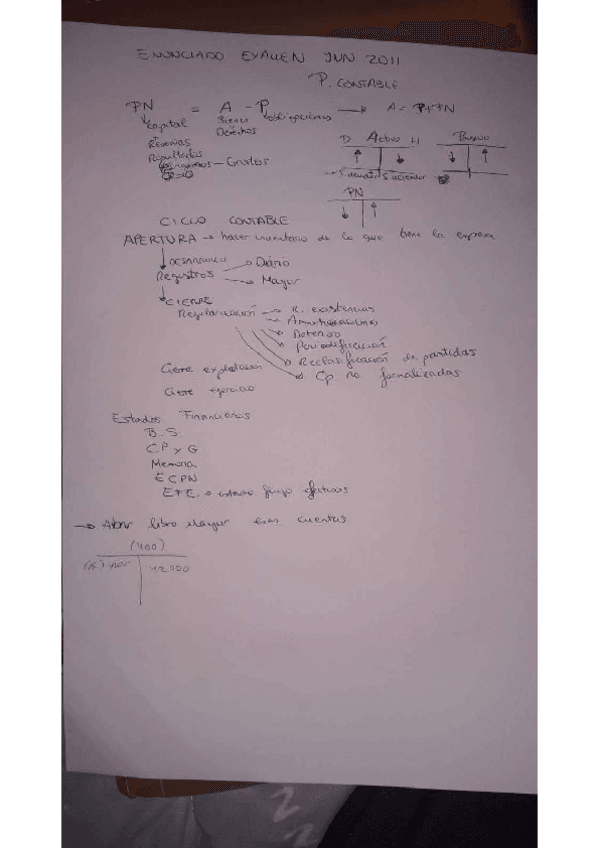 ENUNCIADO EXAMEN JUN 2011
P. CONTABLE
PN = A - P → A = P+PN
Capital Bienes obligaciones
Derechos
Reservas
Resultados
Ingresos - Gastos
D Activo H
Pasivo
S. deudor S. acreedor
PN
CICLO CONTABLE
APERTURA → hacer inventario de lo que tiene la empresa
DESARROLLO
Registros → Diário
→ Mayor
CIERRE
Regularización → R. existencias
Amortizaciones
Deterioro
Periodificación
Reclasificación de partidas
Op no formalizadas
Cierre explotación
Cierre ejercicio
Estados Financieros
B. S.
CP y G
Memoria
ECPN
EFE. → flujo efectivos
→ Abrir libro Mayor esas cuentas
(400)
42000